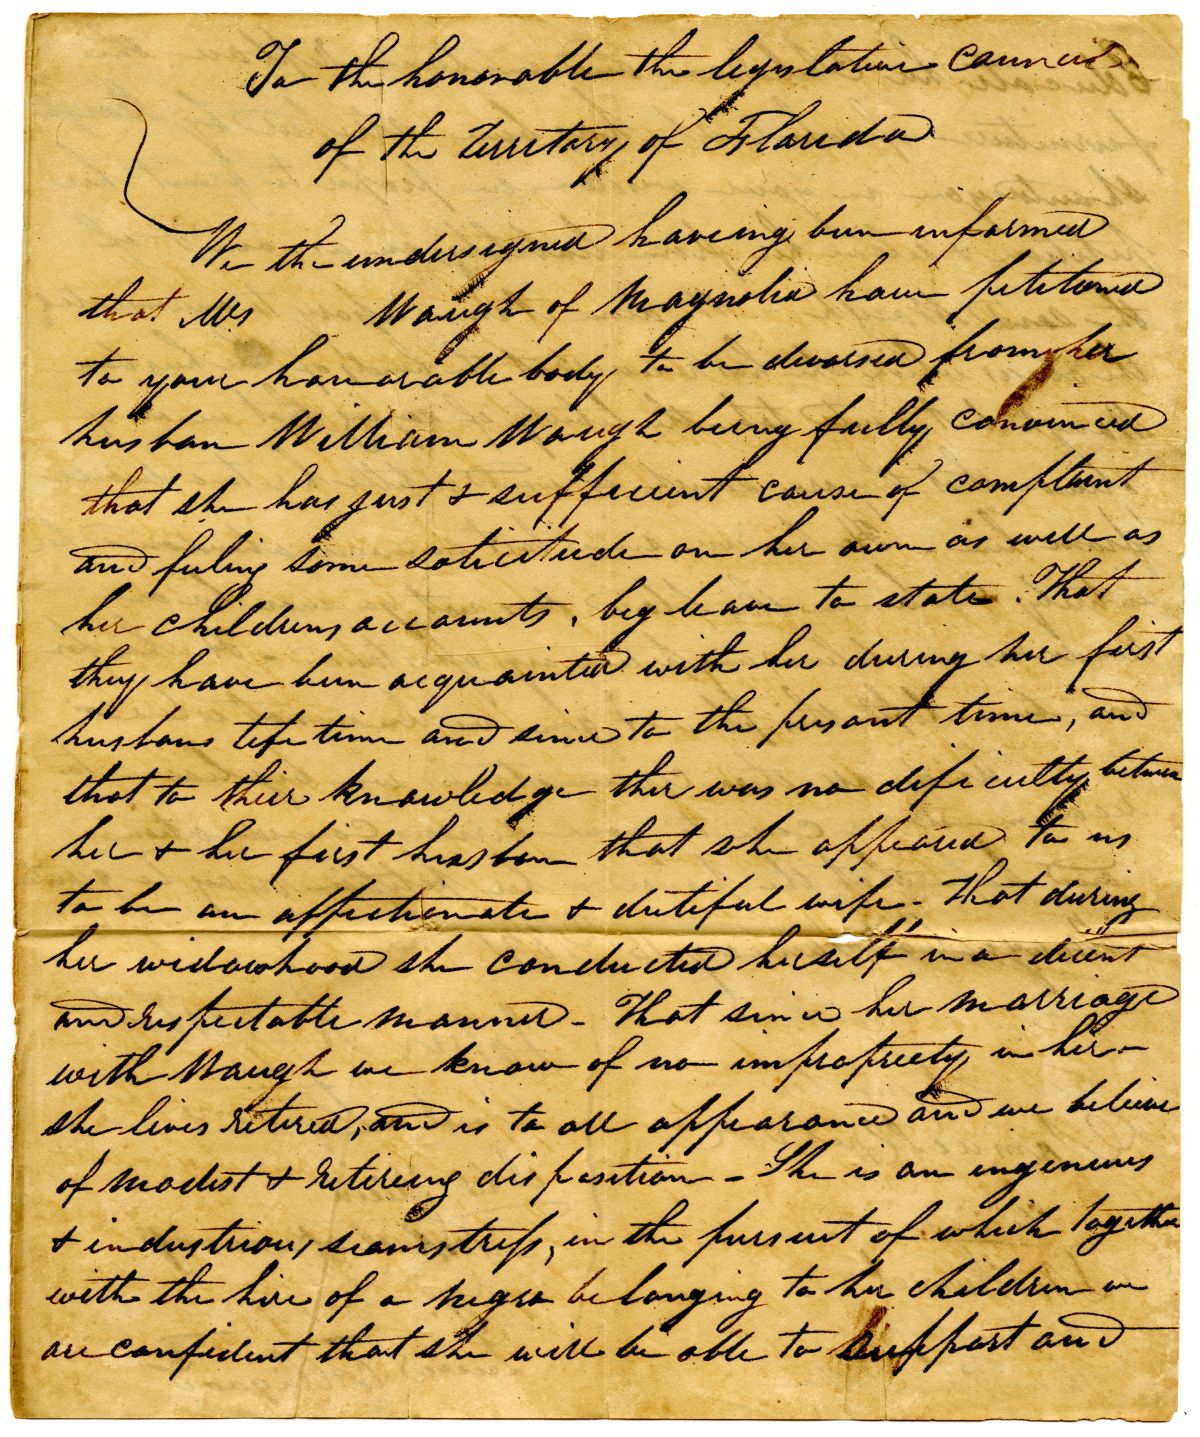 To the honorable the legislative council
of the Territory of Florida
We the undersigned haveing been informed
that Mrs Waugh of Magnolia have petitoned
to your honorable body to be devorsed from her
husban William Waugh being fully convinced
that she has just & sufficient cause of complaint
and feeling some solicitude on her own as well as
her childrens accounts, beg leave to state. That
they have been acquainted with her during her first
husbans lifetime and since to the present time, and
that to their knowledge ther was no dificulty between
her & her first husban that she appeared to us
to be an affectionate & dutiful wife - That during
her widowhood she conducted herself in a decent
and respectable manner - That since her marriage
with Waugh we know of no impropriety in her -
she lives retired, and is to all appearance and we believe
of modest & retireing disposition - She is an ingenius
& industrious seamstress, in the pursuit of which together
with the hire of a negro belonging to her children we
are confident that she will be able to support and